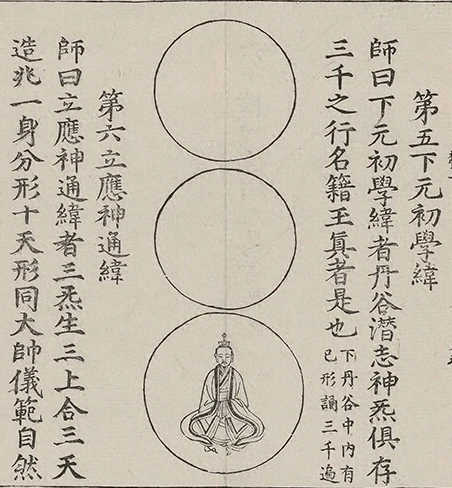 第五下元初學緯
師曰下元初學緯者丹谷潛志神炁俱存
三千之行名籍王眞者是也
下丹谷中內有
已形誦三千遍
第六立應神通緯
師曰立應神通緯者三炁生三上合三天
造兆一身分形十天形同大帥儀範自然